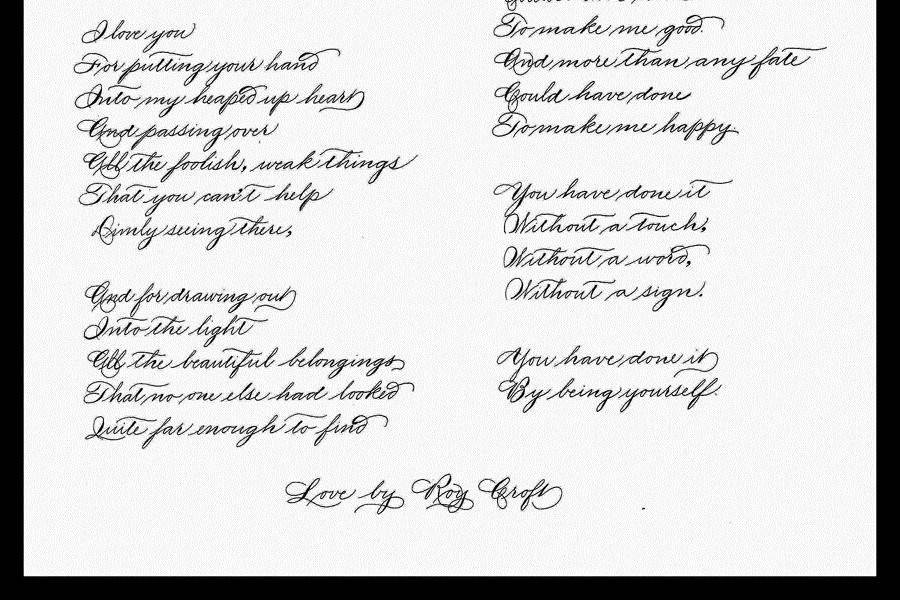 I love you
For putting your hand
Into my heaped up heart
And passing over
All the foolish, weak things
That you can't help
Dimly seeing there,
And for drawing out
Into the light
All the beautiful belongings
That no one else had looked
Quite far enough to find
To make me good.
And more than any fate
Could have done
To make me happy
You have done it
Without a touch,
Without a word,
Without a sign.
You have done it
By being yourself.
Love by Roy Croft